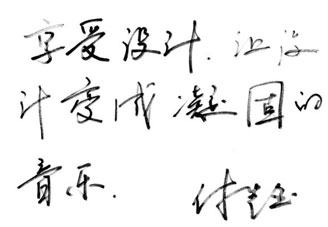 享受设计.让设
计变成凝固的
音乐.